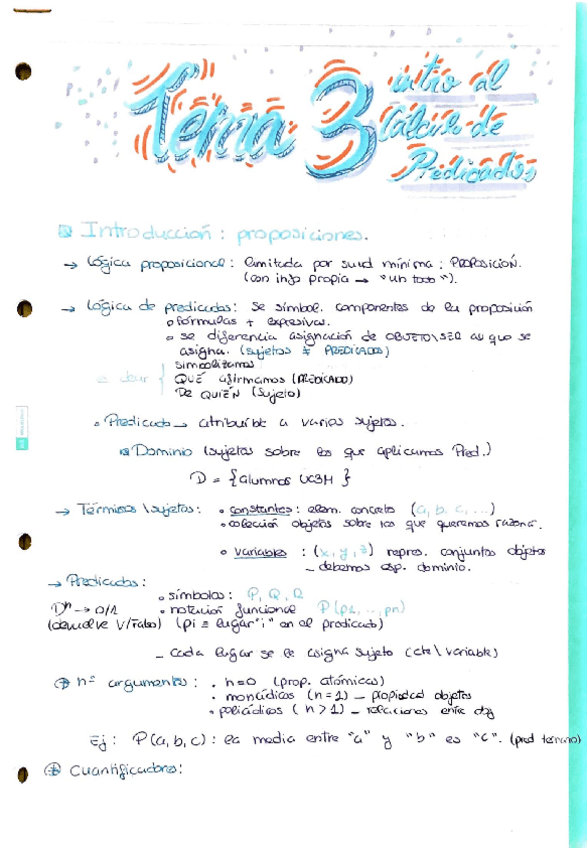 Tema 3 intro al
Cálculo de
Predicados
Introducción: proposiciones.
→ Lógica proposicional: limitada por su ud mínima: PROPOSICIÓN.
(con info propia → "un todo").
→ Lógica de predicados: se símbol. componentes de la proposición
o fórmulas + expresivas.
o se diferencia asignación de OBJETO\SER al que se
asigna. (sujetos ≠ PREDICADOS)
simbolizamos
es decir { QUÉ afirmamos (PREDICADO)
DE QUIÉN (sujeto)
Predicado → atribuible a varios sujetos.
Dominio (sujetos sobre los que aplicamos Pred.)
D = {alumnos UC3M}
→ Términos\sujetos: • constantes: elem. concreto (a, b, c, ...)
• colección objetos sobre los que queremos razonar.
o variables : (x, y, z) repres. conjuntos objetos
_ debemos esp. dominio.
→ Predicados:
o símbolos: P, Q, R
Dⁿ → 0/1 • notación funcional P(p1, .., pn)
(devuelve V/Falso) (pi ≡ lugar "i" en el predicado)
_ cada lugar se le asigna sujeto (cte\variable)
⊕ nº argumentos: • n=0 (prop. atómicas)
• monádicos (n=1) _ propiedad objetos
• poliádicos (n>1) _ relaciones entre obj
Ej: P(a,b,c): la media entre "a" y "b" es "c". (pred ternario)
⊕ Cuantificadores: